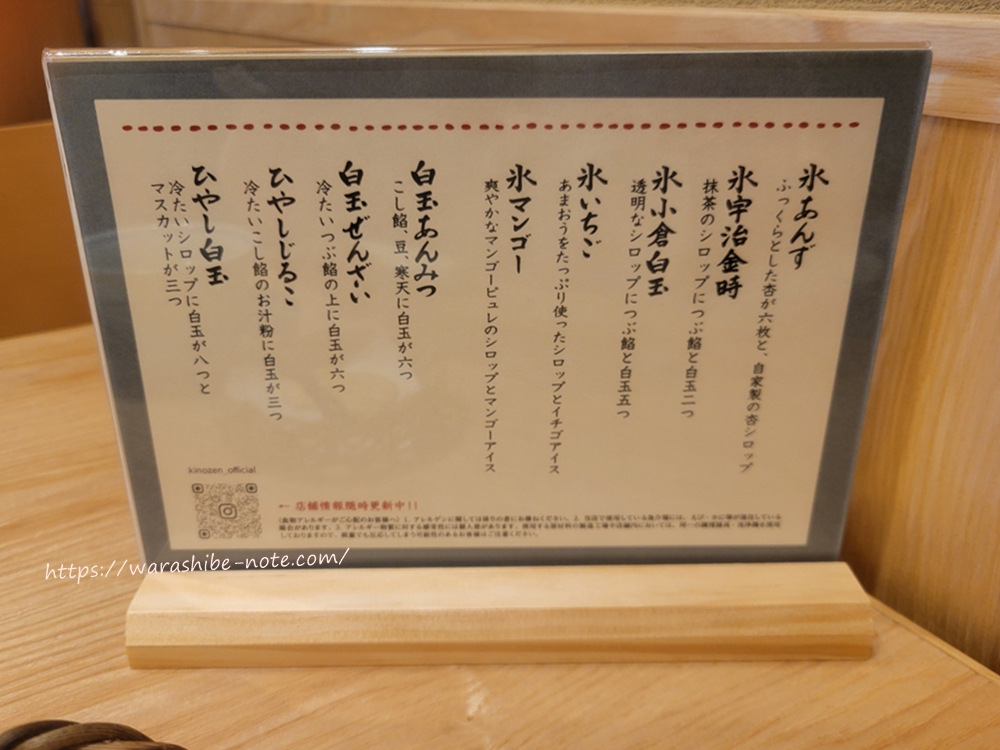 氷あんず
ふっくらとした杏が六枚と、自家製の杏シロップ
氷宇治金時
抹茶のシロップにつぶ餡と白玉二つ
氷小倉白玉
透明なシロップにつぶ餡と白玉五つ
氷いちご
あまおうをたっぷり使ったシロップとイチゴアイス
氷マンゴー
爽やかなマンゴーピュレのシロップとマンゴーアイス
白玉あんみつ
こし餡、豆、寒天に白玉が六つ
白玉ぜんざい
冷たいつぶ餡の上に白玉が六つ
ひやしじるこ
冷たいこし餡のお汁粉に白玉が三つ
ひやし白玉
冷たいシロップに白玉が八つと
マスカットが三つ
kinozen_official
← 店舗情報随時更新中!!
https://warashibe-note.com/